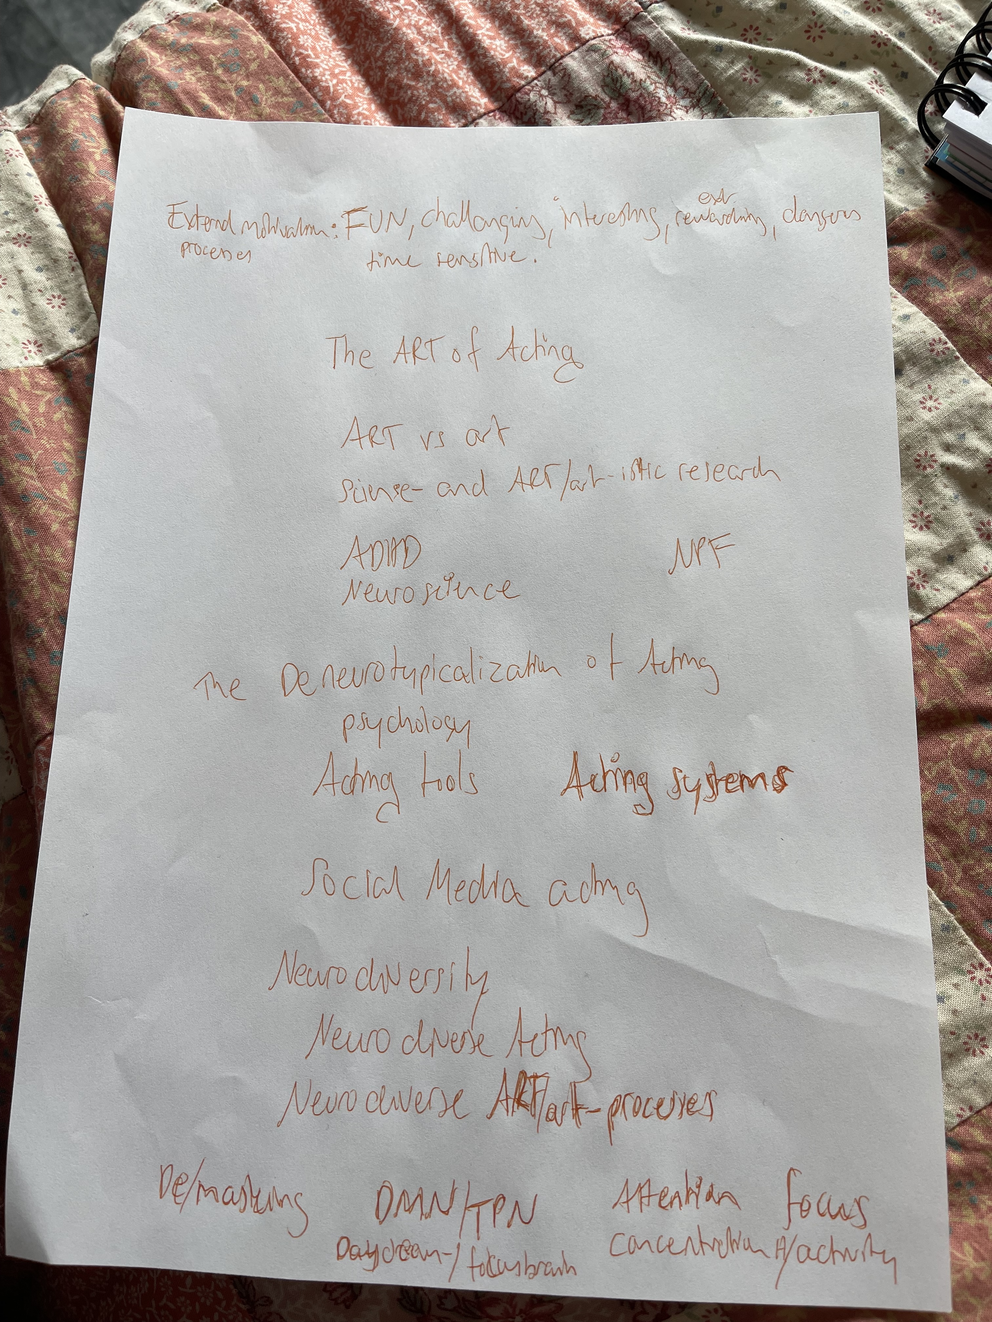 External motivation: FUN, challenging, interesting, ext rewarding, dangerous
processes time sensitive.
The ART of Acting
ART vs art
sciense- and ART/art-istic research
ADHD NPF
Neuroscience
The Deneurotypicalization of Acting
psychology
Acting tools Acting systems
Social Media acting
Neurodiversity
Neurodiverse Acting
Neurodiverse ART/art-processes
De/masking DMN/TPN Attention focus
Daydream-/focusbrain concentration H/activity